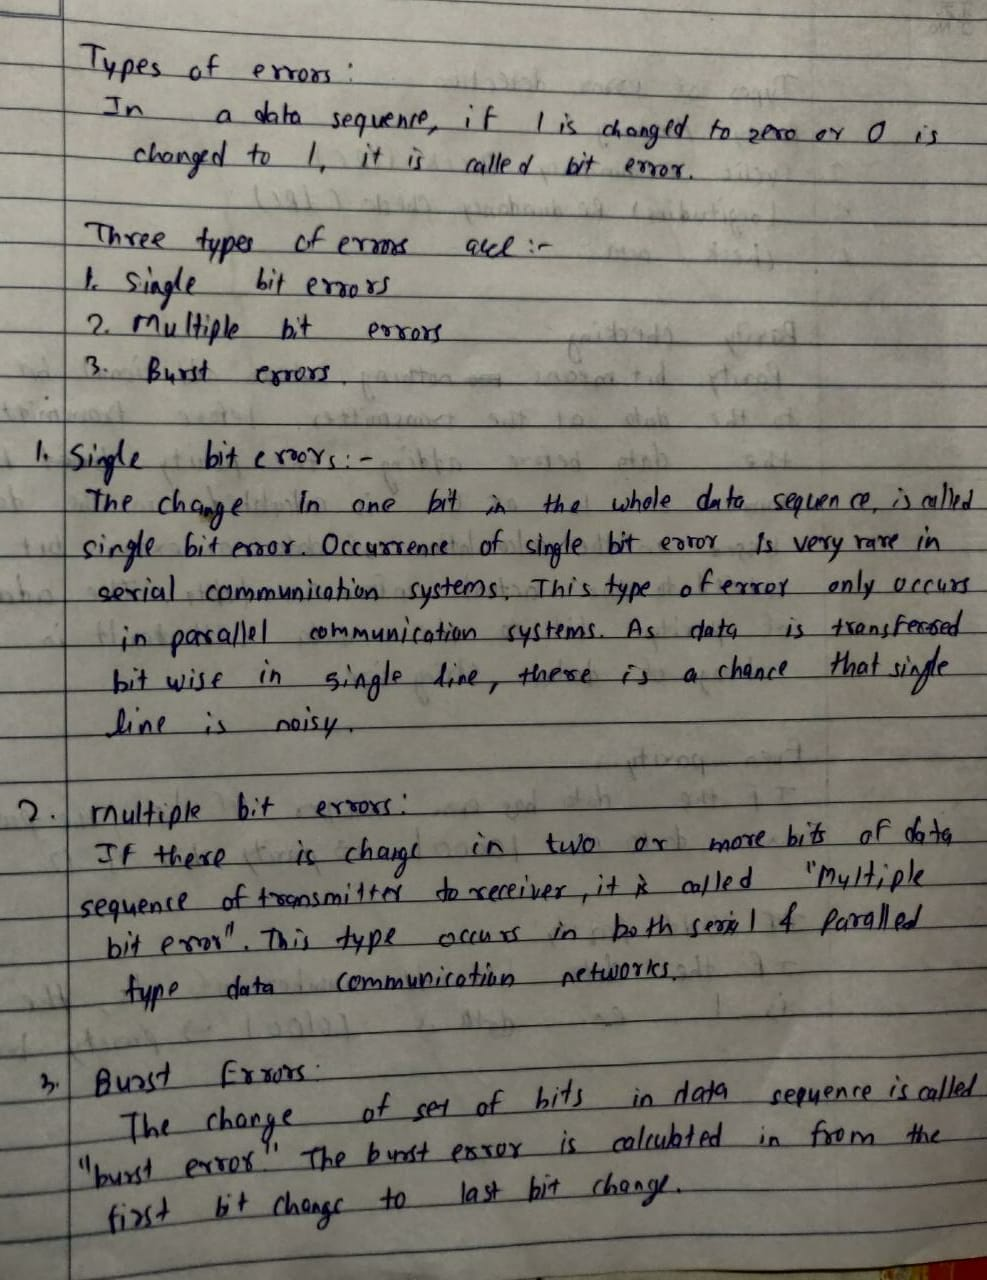 Types of errors:
In a data sequence, if 1 is changed to zero or 0 is
changed to 1, it is called bit error.
Three types of errors are :-
1. Single bit errors
2. Multiple bit errors
3. Burst errors.
1. Single bit errors:-
The change In one bit in the whole data sequence, is called
single bit error. Occurrence of single bit error Is very rare in
serial communication systems. This type of error only occurs
in parallel communication systems. As data is transferred
bit wise in single line, there is a chance that single
line is noisy.
2. multiple bit errors:
If there is change in two or more bits of data
sequence of transmitter to receiver, it is called "Multiple
bit error". This type occurs in both serial & Paralled
type data communication networks.
3. Burst Errors:
The change of set of bits in data sequence is called
"burst error." The burst error is calculated in from the
first bit change to last bit change.